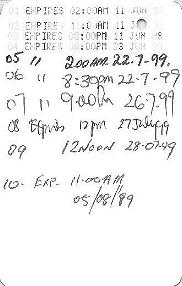 01 EXPIRES 02:00AM 11 JUN
EXPIRES 11:00AM 11 JUN
EXPIRES 08:00PM 11 JUN
EXPIRES 08:00PM 23 JUN
05 " 2.00AM 22-7-99.
06 " 8:30pm 22-7-99
07 " 9.00pm 26.7.99
08 Expires 12pm 27 July 99
09 12 NOON 28-07-99
10. EXP. 11:00AM
05/08/99